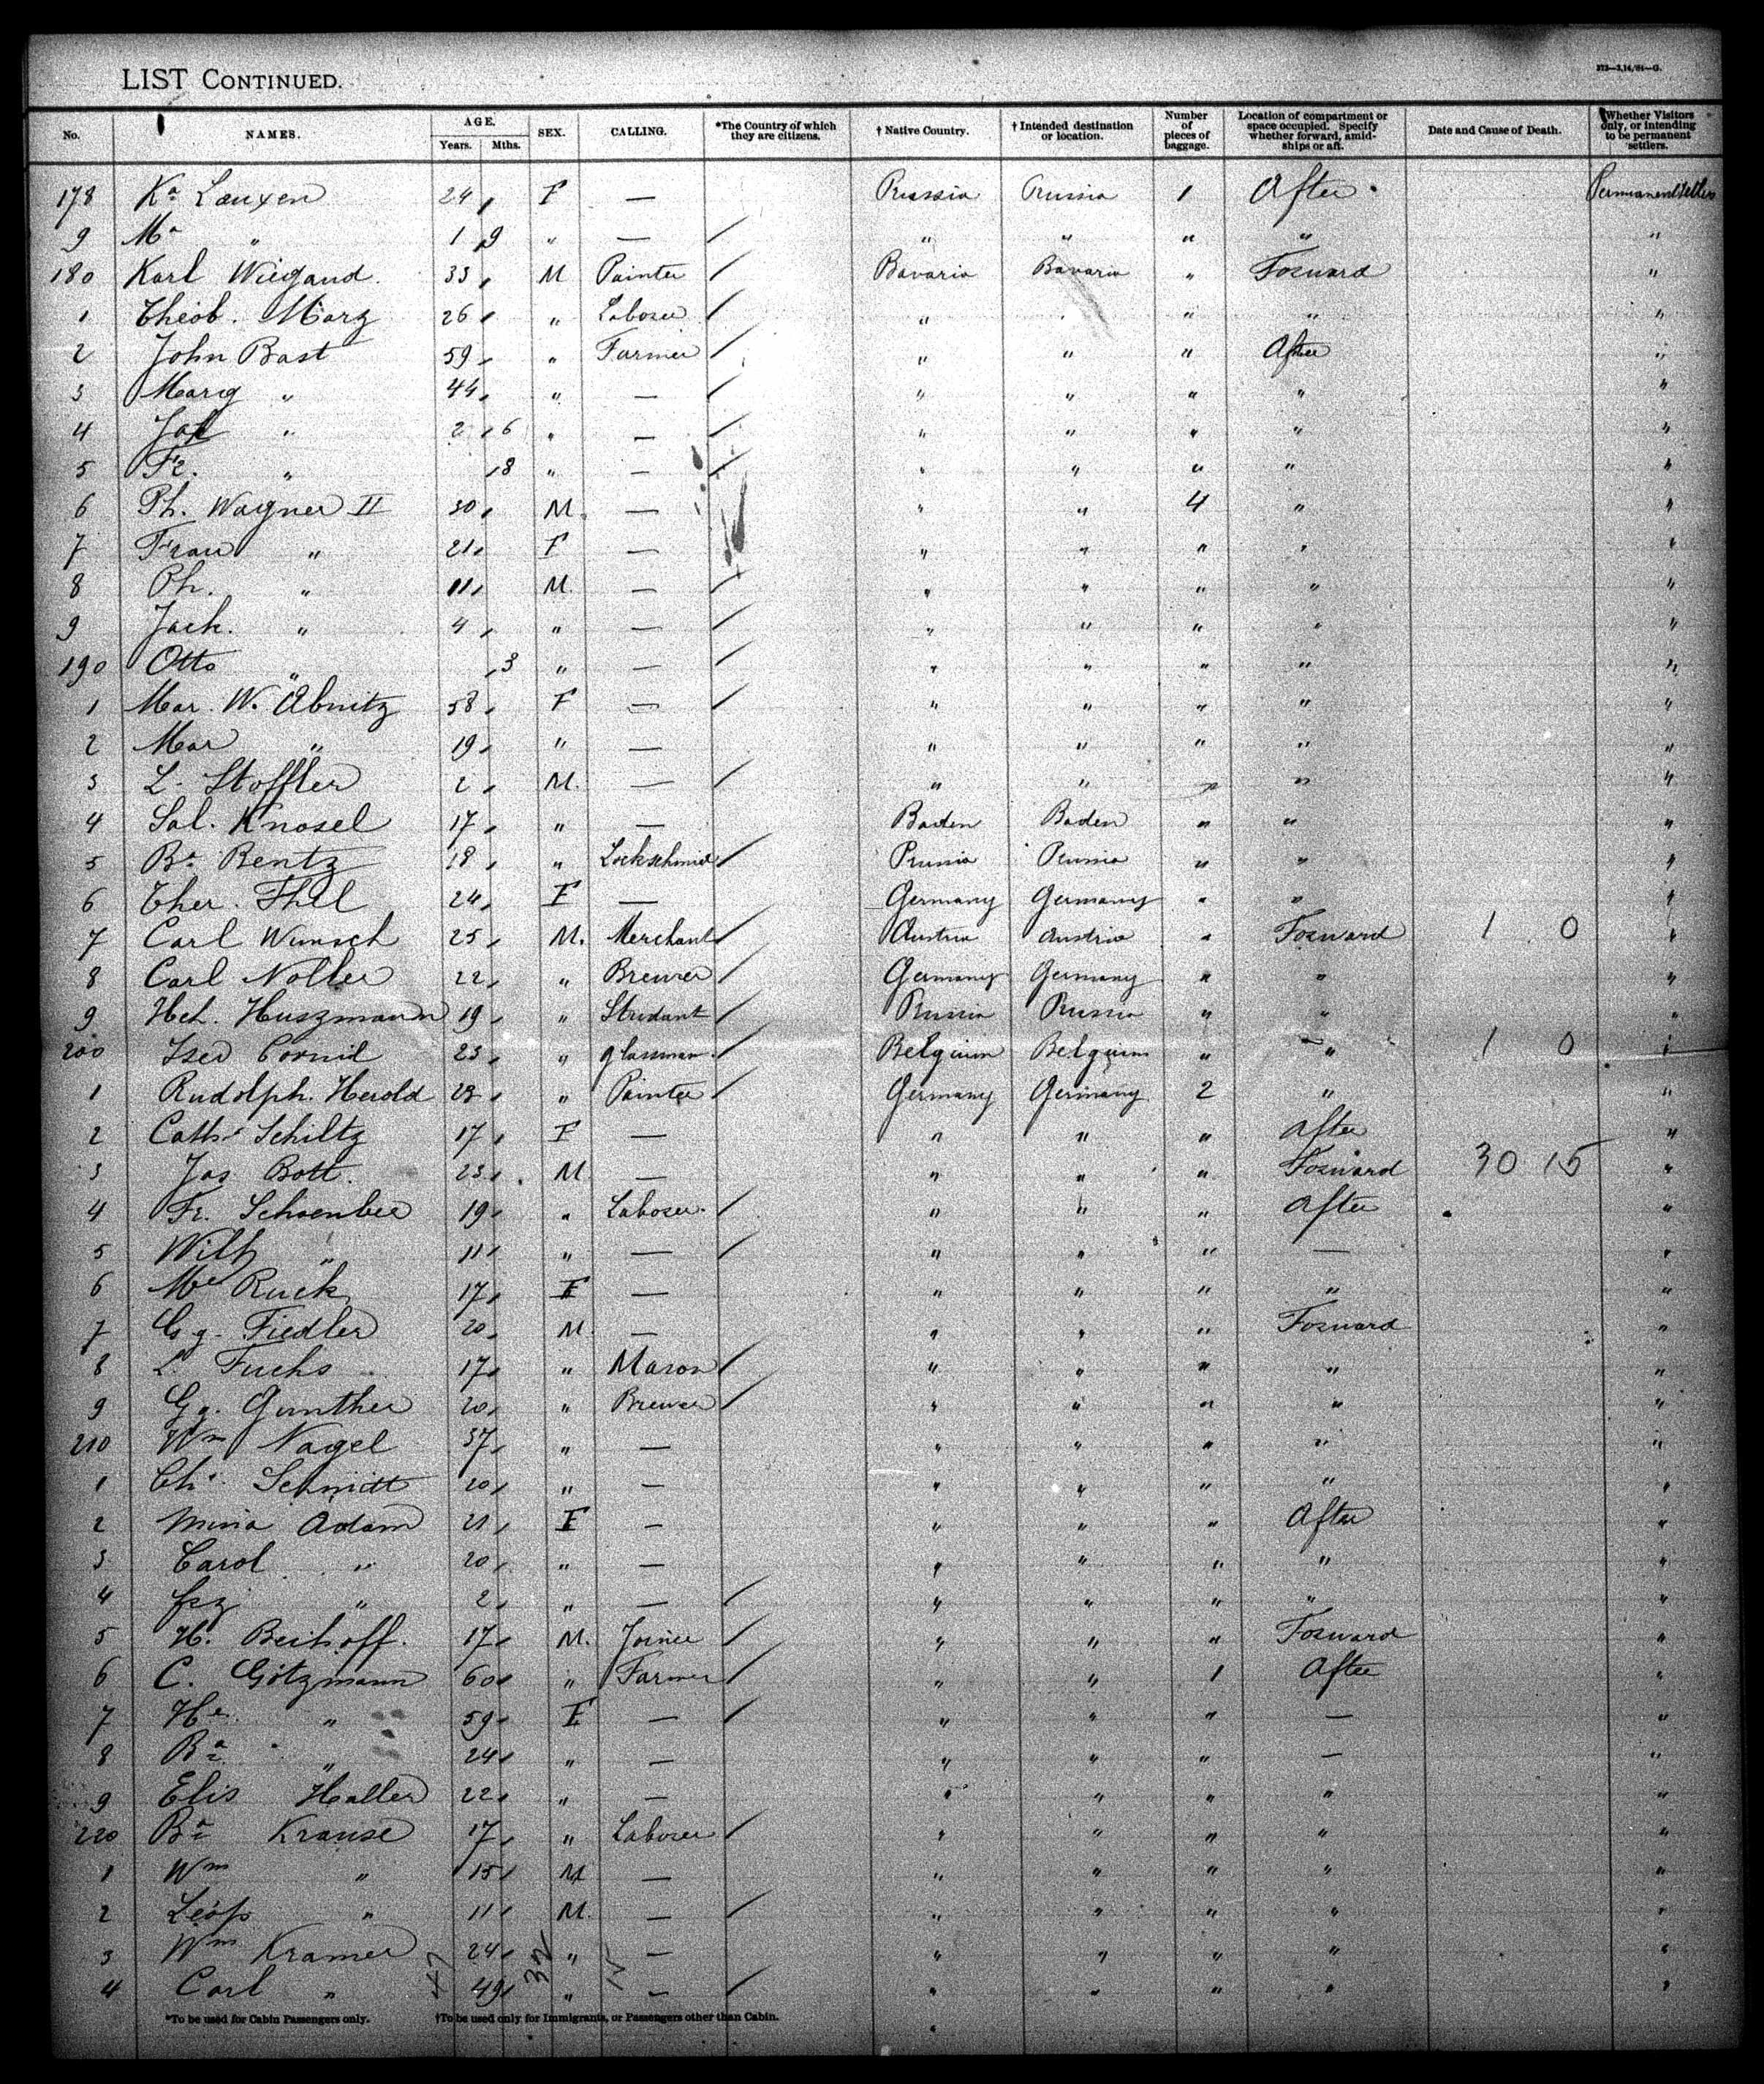 LIST CONTINUED.
No. NAMES. AGE. Years. Mths. SEX. CALLING. *The Country of which they are citizens. † Native Country. † Intended destination or location. Number of pieces of baggage. Location of compartment or space occupied. Specify whether forward, amidships or aft. Date and Cause of Death. Whether Visitors only, or intending to be permanent settlers.
178 Ka Lauxen 24 F — Prussia Prussia 1 After Permanent Settlers
9 Ma " 1 9 " — " " " " "
180 Karl Wiegand. 33 M Painter Bavaria Bavaria " Forward "
1 Theob. Marz 26 " Laborer " " " "
2 John Bast 59 " Farmer " " " After "
3 Marg " 44 " — " " " " "
4 " 2 6 " — " " " " "
5 Fr. " 8 " — " " " " "
6 Ph. Wagner II 30 M. — " " 4 " "
7 Frau " 21 F — " " " " "
8 Ph. " 11 M. — " " " " "
9 Jack. " 4 " — " " " " "
190 Otto " 3 " — " " " " "
1 Mar. W. Abnitz 58 F — " " " " "
2 Mar " 19 " — " " " " "
3 L. Stoffler 2 M. — " " " " "
4 Sal. Knosel 17 " — Baden Baden " " "
5 Ba Rentz 18 " Lockschmid Prussia Prussia " " "
6 Ther. Thel 24 F — Germany Germany " " "
7 Carl Wunsch 25 M. Merchant Austria Austria " Forward 1 0 "
8 Carl Noller 22 " Brewer Germany Germany " " "
9 Hch. Huszmann 19 " Studant Prussia Prussia " " "
200 Cornil 23 " glassman. Belguim Belguim " " 1 0 "
1 Rudolph. Herold 23 " Painter Germany Germany 2 " "
2 Cath. Schiltz 17 F — " " " After "
3 Jos Bott. 23 M. — " " " Forward 30 15 "
4 Fr. 19 " Laborer. " " " After "
5 Wilh " 11 " — " " " — "
6 Me Ruck 17 F — " " " " "
7 Gg. Fiedler 20 M. — " " " Forward "
8 L. Fuchs 17 " Mason " " " " "
9 Gg. Gunther 20 " Brewer " " " " "
210 Wm Nagel 37 " — " " " " "
1 Ch. Schmidt 20 " — " " " " "
2 Mina Adam 21 F — " " " After "
3 Carol " 20 " — " " " " "
4 " 2 " — " " " " "
5 H. Beihoff. 17 M. Joiner " " " Forward "
6 C. Götzmann 60 " Farmer " " 1 After "
7 He " 59 F — " " " — "
8 Ba " 24 " — " " " — "
9 Elis Haller 22 " — " " " " "
220 Ba Krause 17 " Laborer " " " " "
1 Wm " 15 M — " " " " "
2 Leop " 11 M. — " " " " "
3 Wm Kramer 24 " — " " " " "
4 Carl " 49 " — " " " " "
*To be used for Cabin Passengers only. †To be used only for Immigrants, or Passengers other than Cabin.